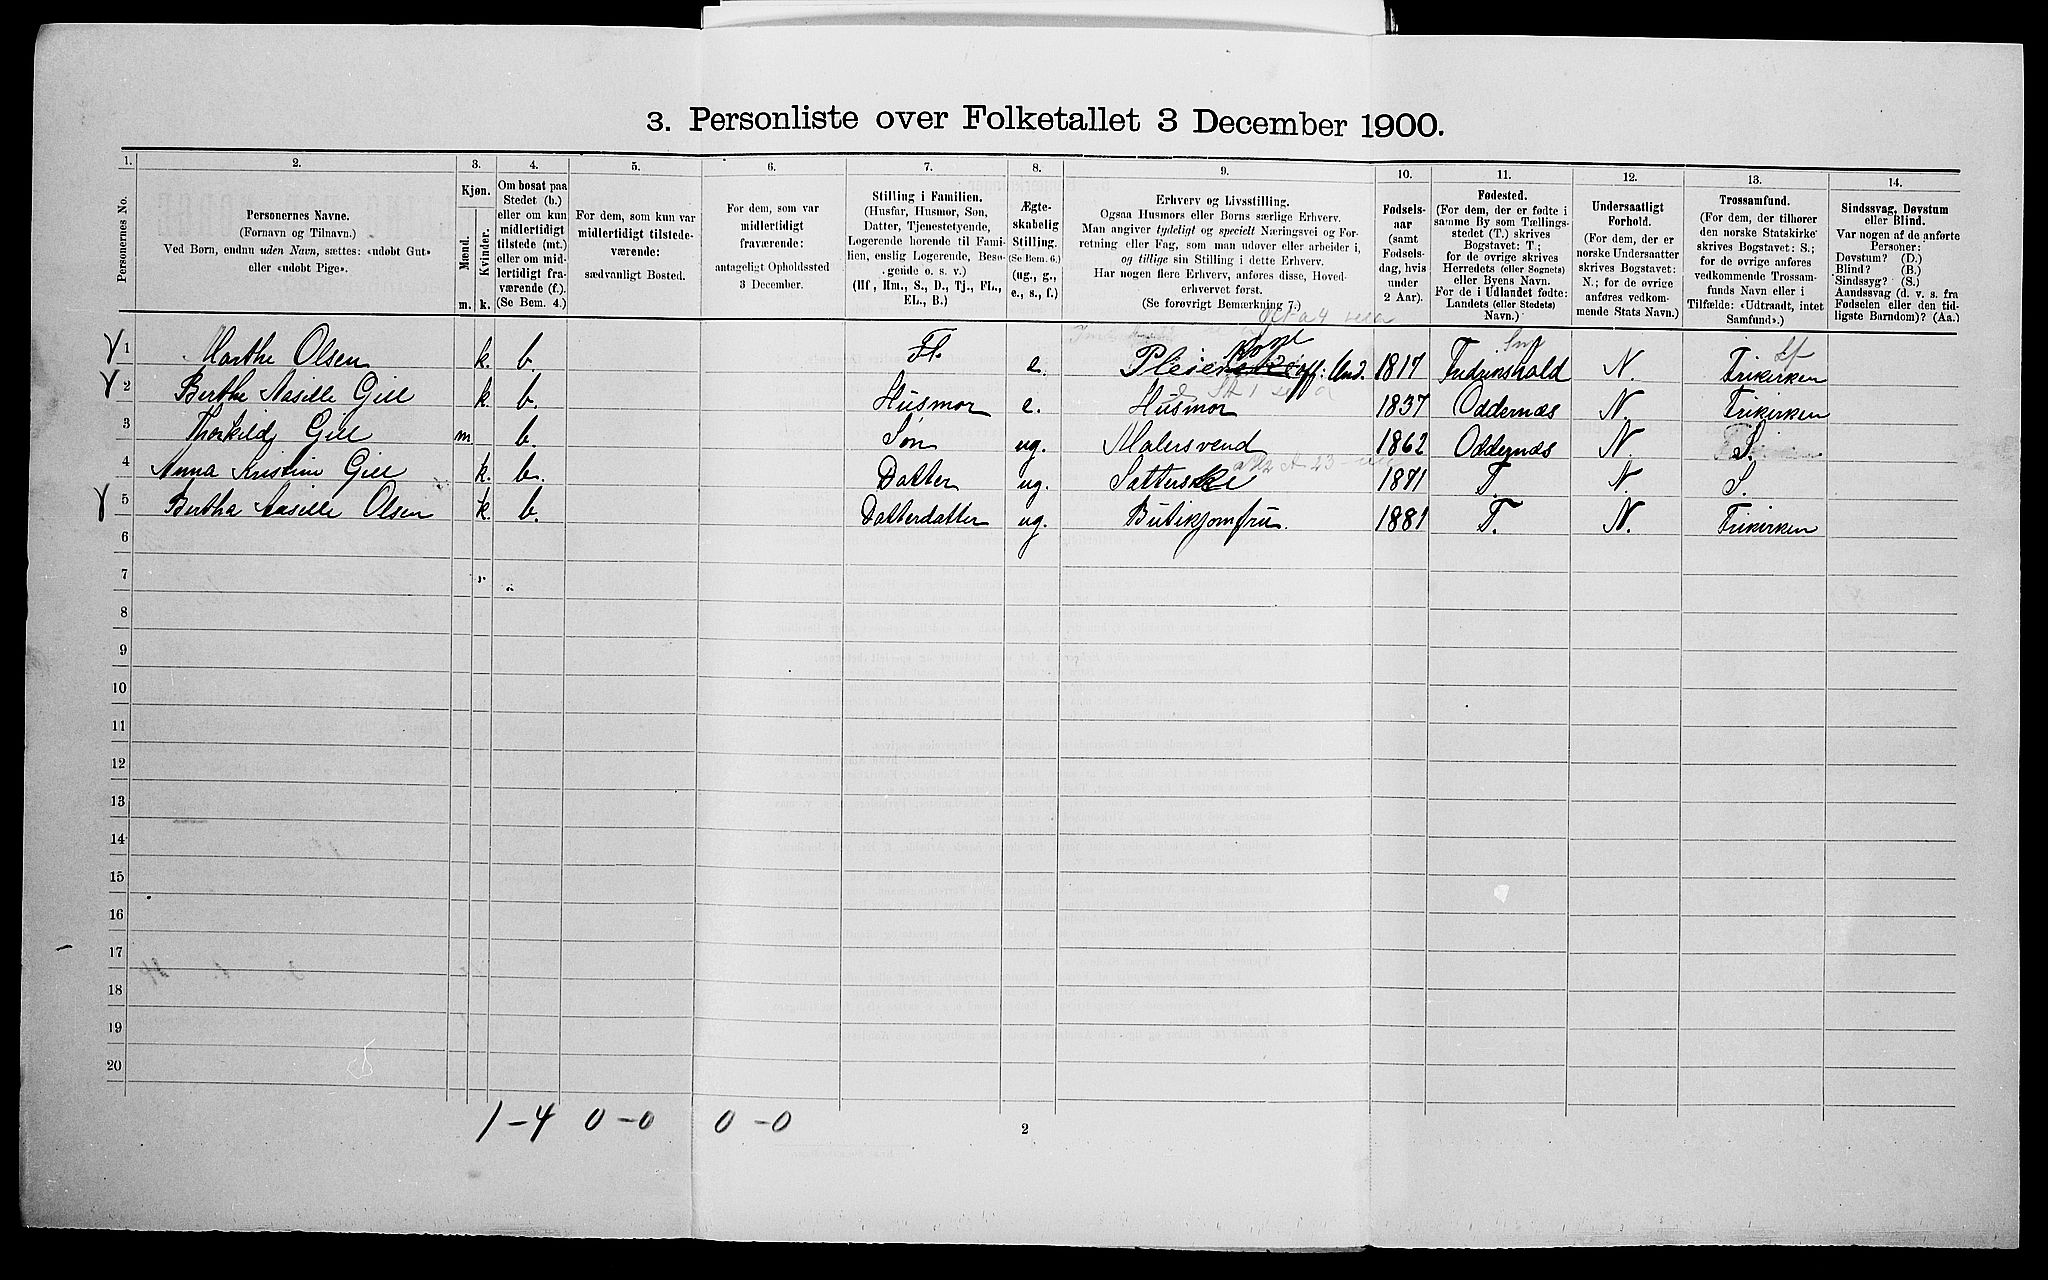 3. Personliste over Folketallet 3 December 1900.
1. 2. 3. 4. 5. 6. 7. 8. 9. 10. 11. 12. 13. 14.
Personernes No.
Personernes Navne.
(Fornavn og Tilnavn.)
Ved Børn, endnu uden Navn, sættes: «udøbt Gut»
eller «udøbt Pige».
Kjøn.
Mænd.
Kvinder.
m. k.
Om bosat paa
Stedet (b.)
eller om kun
midlertidigt
tilstede (mt.)
eller om mid-
lertidigt fra-
værende (f.).
(Se Bem. 4.)
For dem, som kun var
midlertidigt tilstede-
værende:
sædvanligt Bosted.
For dem, som var
midlertidigt
fraværende:
antageligt Opholdssted
3 December.
Stilling i Familien.
(Husfar, Husmor, Søn,
Datter, Tjenestetyende,
Logerende hørende til Fami-
lien, enslig Logerende, Besø-
gende o. s. v.)
(Hf, Hm., S., D., Tj., FL.,
EL., B.)
Ægte-
skabelig
Stilling.
(Se Bem. 6.)
(ug., g.,
e., s., f.)
Erhverv og Livsstilling.
Ogsaa Husmors eller Børns særlige Erhverv.
Man angiver tydeligt og specielt Næringsvei og For-
retning eller Fag, som man udøver eller arbeider i,
og tillige sin Stilling i dette Erhverv.
Har nogen flere Erhverv, anføres disse, Hoved-
erhvervet først.
(Se forøvrigt Bemærkning 7.)
Fødsels-
aar
(samt
Fødsels-
dag, hvis
under
2 Aar).
Fødested.
(For dem, der er fødte i
samme By som Tællings-
stedet (T.) skrives
Bogstavet: T.;
for de øvrige skrives
Herredets (eller Sognets)
eller Byens Navn.
For de i Udlandet fødte:
Landets (eller Stedets)
Navn.)
Undersaatligt
Forhold.
(For dem, der er
norske Undersaatter
skrives Bogstavet:
N.; for de øvrige
anføres vedkom-
mende Stats Navn.)
Trossamfund.
(For dem, der tilhører
den norske Statskirke
skrives Bogstavet: S.;
for de øvrige anføres
vedkommende Trossam-
funds Navn eller i
Tilfælde: «Udtraadt, intet
Samfund».)
Sindssvag, Døvstum
eller Blind.
Var nogen af de anførte
Personer:
Døvstum? (D.)
Blind? (B.)
Sindssyg? (S.)
Aandssvag (d. v. s. fra
Fødselen eller den tid-
ligste Barndom)? (Aa.)
1 Marthe Olsen k. b. Fl. e. Pleie off: Und. 1817 Fredrikshald N. Frikirken
2 Berthe Aasille Gill k. b. Husmor e. Husmor 1837 Oddernæs N. Frikirken
3 Thorkild Gill m b. Søn ug. Malersvend 1862 Oddernæs N. S.
4 Anna Kristine Gill k. b. Datter ug. Satterske 1871 T. N. S.
5 Bertha Aasille Olsen k. b. Datterdatter ug. Butikjomfru. 1881 T. N. Frikirken
6
7
8
9
10
11
12
13
14
15
16
17
18
19
20
1-4 0-0 0-0
2